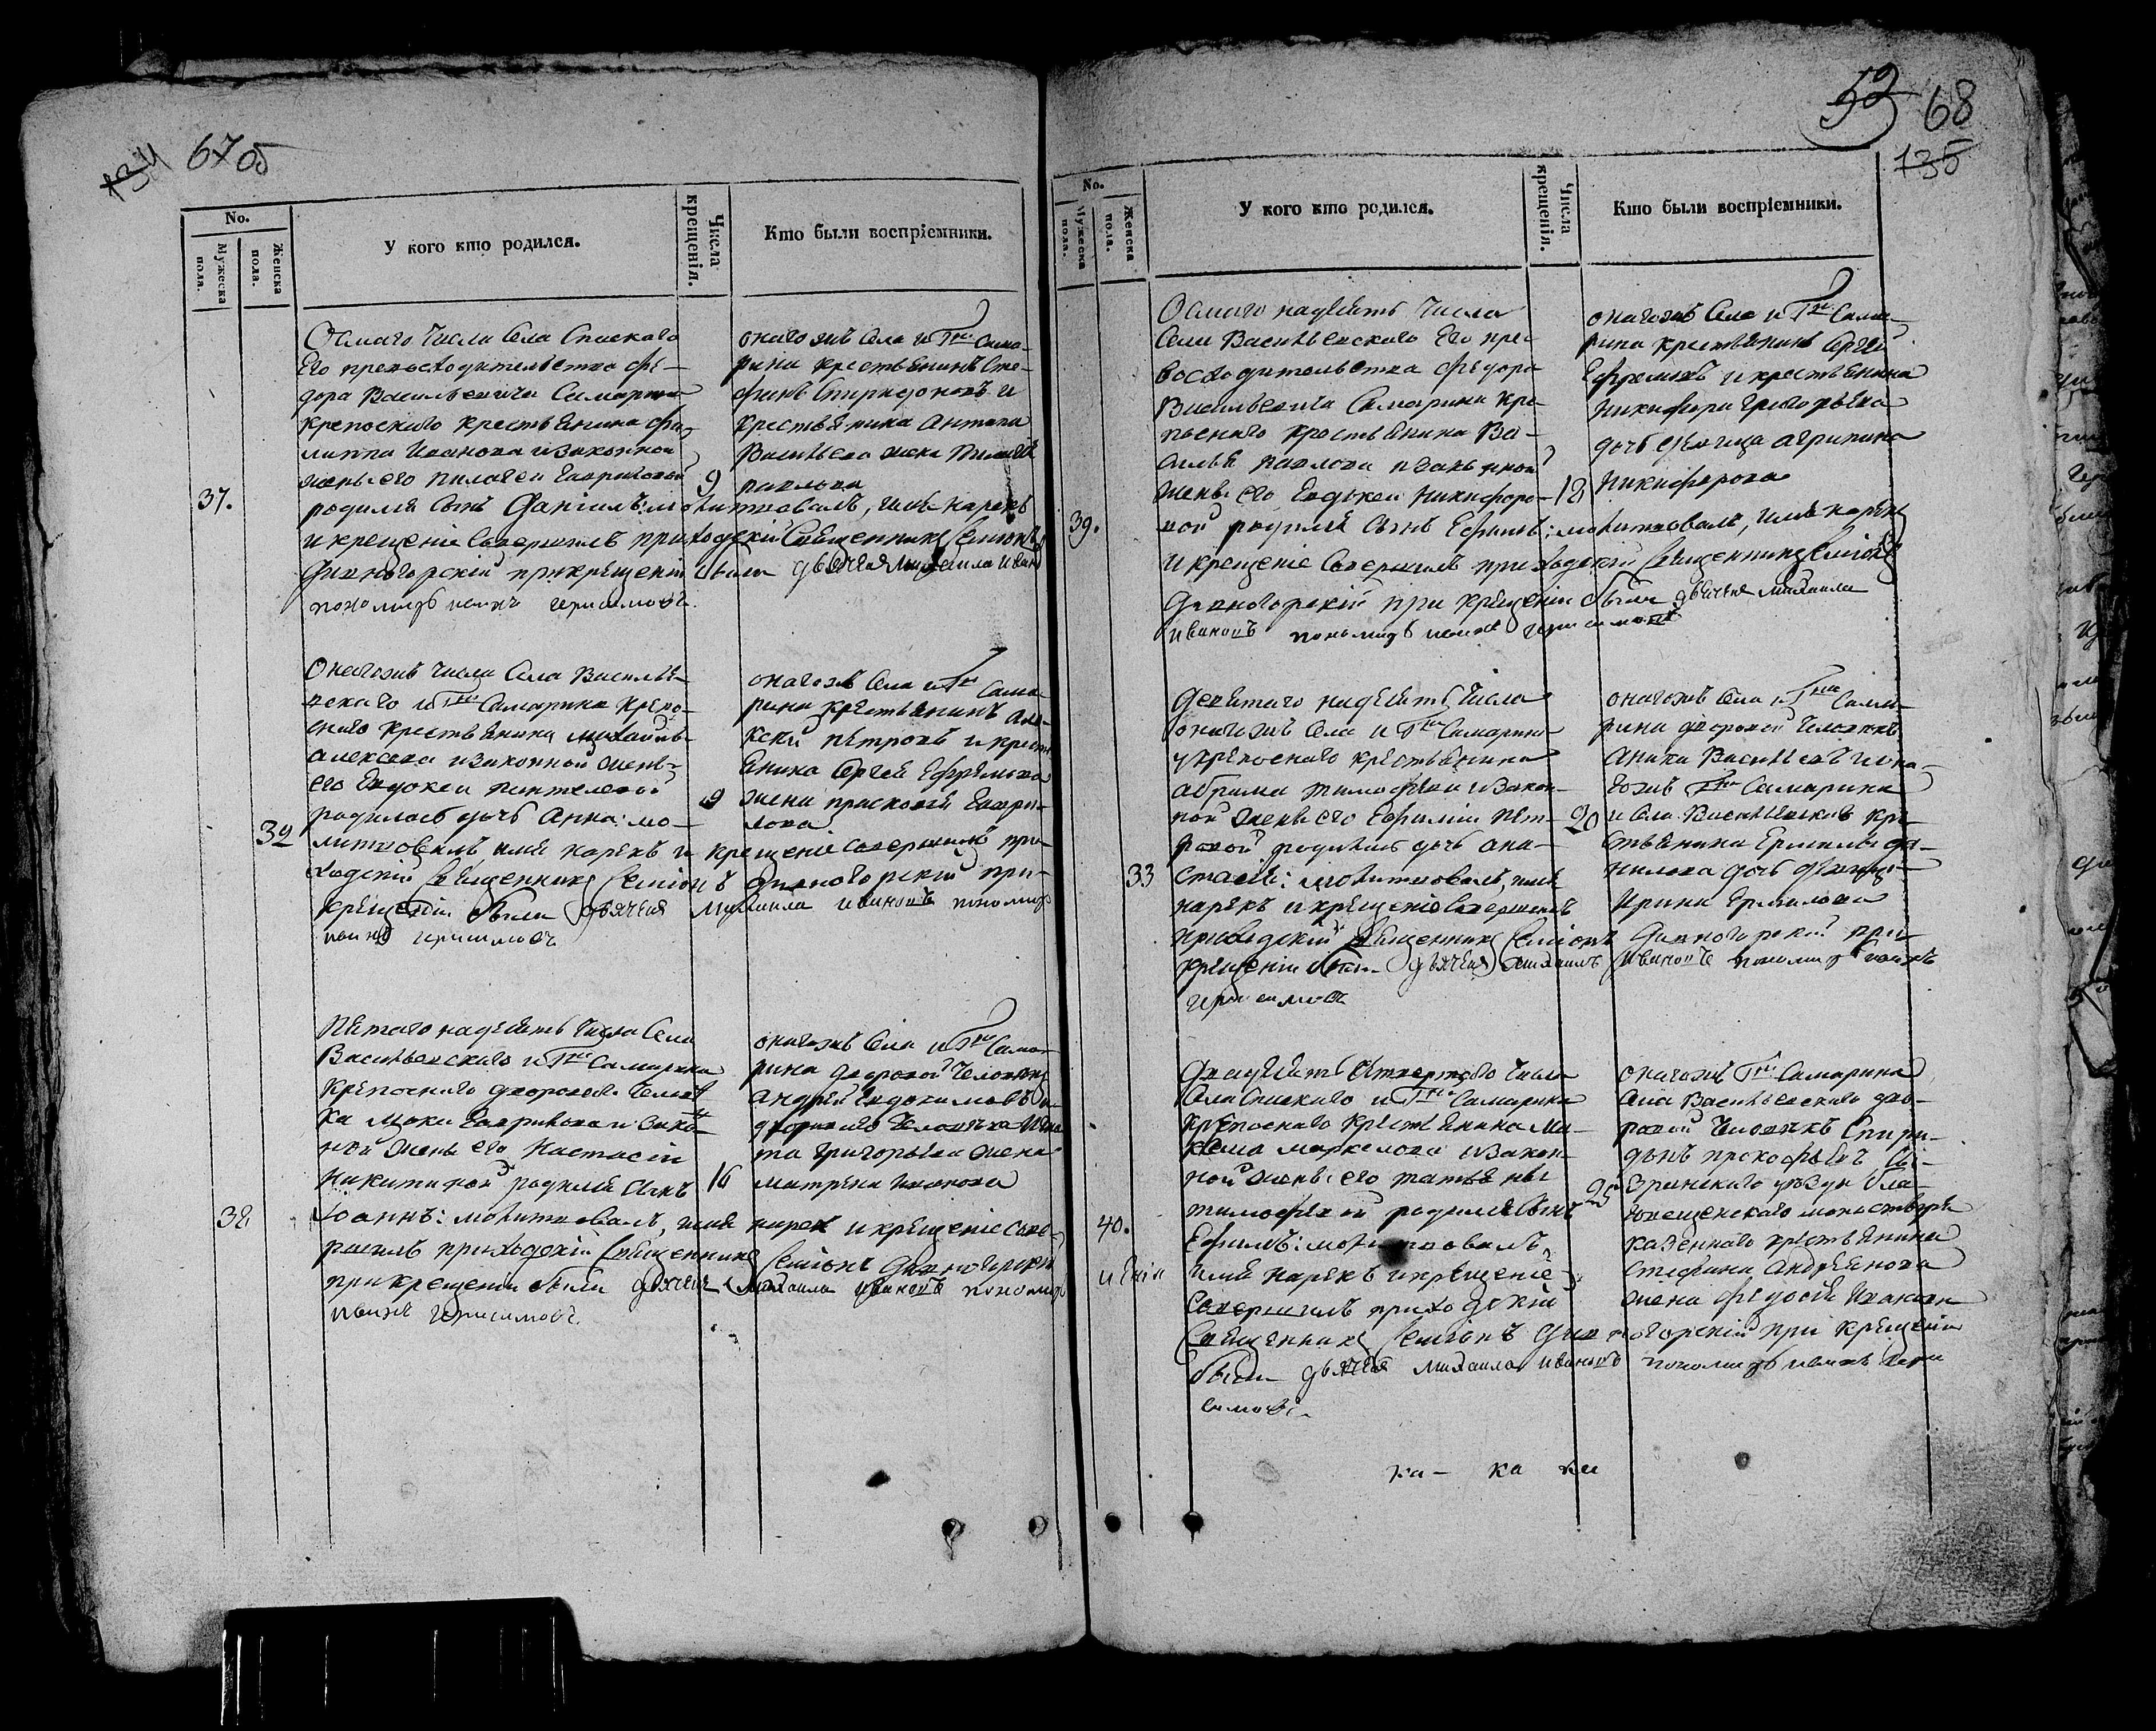 134 67 об
No.
Мужеска пола.
Женска пола.
У кого кто родился.
Числа крещенія.
Кто были воспріемники.
Осмаго числа села Спаскаго
Его превосходительства Фе-
дора Васильевича Самарина
крепоснаго крестьянина Фи-
липпа Иванова и законной
жены его Пелагеи Гавриловой
37.
родился сынъ Даніилъ: молитвовалъ, имя нарекъ
и крещеніе совершилъ приходскій священникъ Семіонъ
Дивногорскій при крещеніи были дьячекъ Михаила Иван
пономарь Герасимовъ.
9
онагожъ села и Гна Сама-
рина крестьянинъ Сте-
фанъ Спиридоновъ и
крестьянина Антипа
Васильева жена Пелагея
Павлова
Онагожъ числа села Василье-
вскаго и Гна Самарина крепо-
снаго крестьянина Михаила
Алексеева и законной жены
его Евдокеи Пантелевой
родилась дочь Анна: мо-
32
литвовалъ, имя нарекъ и крещеніе совершилъ при-
ходскій священникъ Семіонъ Дивногорскій при
крещеніи были дьячекъ Михаила Ивановъ пономарь
Герасимовъ
9
онагожъ села и Гна Сама-
рина крестьянинъ Але-
ксей Петровъ и крест
янина Сергея Ефремова
жена Прасковья Гаври-
лова
Пятаго надесять числа села
Васильевскаго и Гна Самарина
крепоснаго двороваго челове
ка Моки Гаврилова и зако-
ной жены его Настасіи
Никитиной родился сынъ
38
Іоаннъ: молитвовалъ, имя нарекъ и крещеніе сове-
ршилъ приходскій священникъ Семіонъ Дивногорскій
при крещеніи были дьячекъ Михаила Ивановъ пономарь
Герасимовъ.
16
онагожъ села и Гна Сама-
рина дворовой человекъ
Андрей Евдокимовъ и
двороваго человека
Григорьева жена
Матрена Иванова
52 68
135
No.
Мужеска пола.
Женска пола.
У кого кто родился.
Числа крещенія.
Кто были воспріемники.
Осмаго надесять числа
села Васильевскаго Его пре-
восходительства Федора
Васильевича Самарина кре-
поснаго крестьянина Ва-
силья Павлова и законной
жены его Евдокеи Никифоро-
39.
вой родился сынъ Ефимъ: молитвовалъ, имя нарекъ
и крещеніе совершилъ приходскій священникъ Семіонъ
Дивногорскій при крещеніи были дьячекъ Михаила
Ивановъ пономарь Герасимовъ
18
онагожъ села и Гна Сама-
рина крестьянинъ Сергей
Ефремовъ и крестьянина
Никифора Григорьева
дочь девица Агрипина
Никифорова
Девятаго надесять числа
онагожъ села и Гна Самарина
у крепоснаго крестьянина
Абрама Тимофеева и закон-
ной жены его Ефиміи Пет-
ровой родилась дочь Ана-
33
стасія: молитвовалъ, имя
нарекъ и крещеніе совершилъ
приходскій священникъ Семіонъ Дивногорскій при
крещеніи были дьячекъ Михаилъ Ивановъ пономарь
Герасимовъ
20
онагожъ села и Гна Сама-
рина дворовой человекъ
Аника Васильевъ и она-
гожъ Гна Самарина
и села Васильевскаго кре-
стьянина Ермила Да-
нилова дочь девица
Ирина Ермилова
Двадесять четвертаго числа
села Спаскаго и Гна Самарина
крепоснаго крестьянина Ми-
Маркелова и закон-
ной жены его Татьяны
Тимофевой родился сынъ
40.
Ефимъ: молитвовалъ,
имя нарекъ и крещеніе
совершилъ приходскій
священникъ Семіонъ Дивногорскій при крещеніи
были дьячекъ Михаила Ивановъ пономарь Гера
симовъ.
25
онагожъ Гна Самарина
села Васильевскаго дво-
ровой человекъ Спири-
донъ Прокофьевъ Сы-
зранскаго уезда Бла-
говещенскаго монастыря
казеннаго крестьянина
Стефана Андреянова
жена Федосья Иванова
ка- ка ка